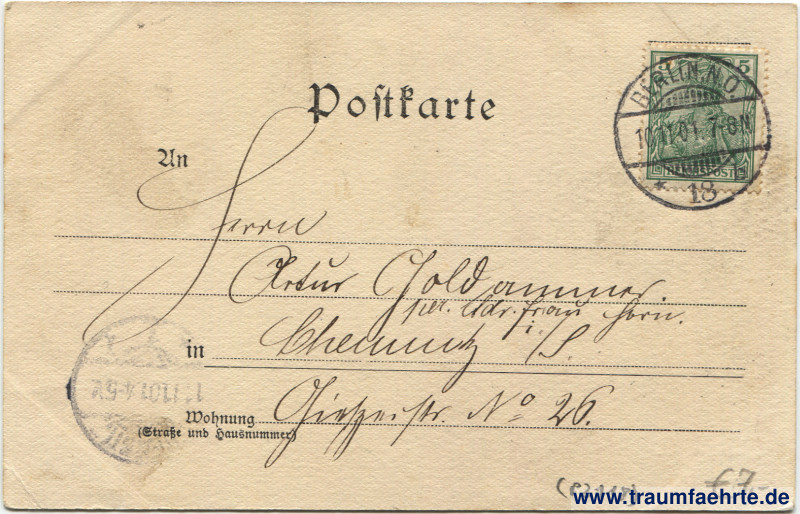 Postkarte
5
BERLIN. N.O.
10.11.01. 7-8N.
* 18
REICHSPOST
An
Herrn
Artur Goldammer
per. Adr. Frau Horn.
in Chemnitz i/S.
11.11.01.4-5V
Wohnung
(Straße und Hausnummer)
Nº 26.
£7,-
www.traumfaehrte.de